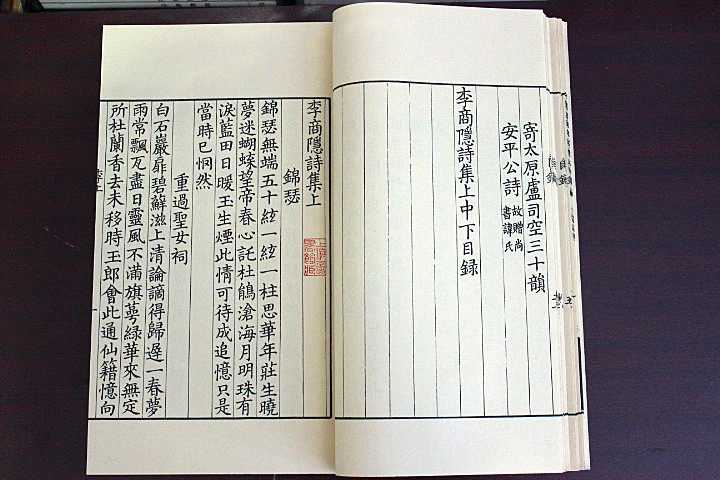 寄太原盧司空三十韻
安平公詩 故贈尚書諱氏
李商隱詩集上中下目録
李商隱詩集上
錦瑟
錦瑟無端五十絃一絃一柱思華年莊生曉
夢迷蝴蝶望帝春心託杜鵑滄海月明珠有
淚藍田日暖玉生煙此情可待成追憶只是
當時已惘然
重過聖女祠
白石巖扉碧蘚滋上清論謫得歸遲一春夢
雨常飄瓦盡日靈風不滿旗萼緑華來無定
所杜蘭香去未移時玉郎會此通仙籍憶向